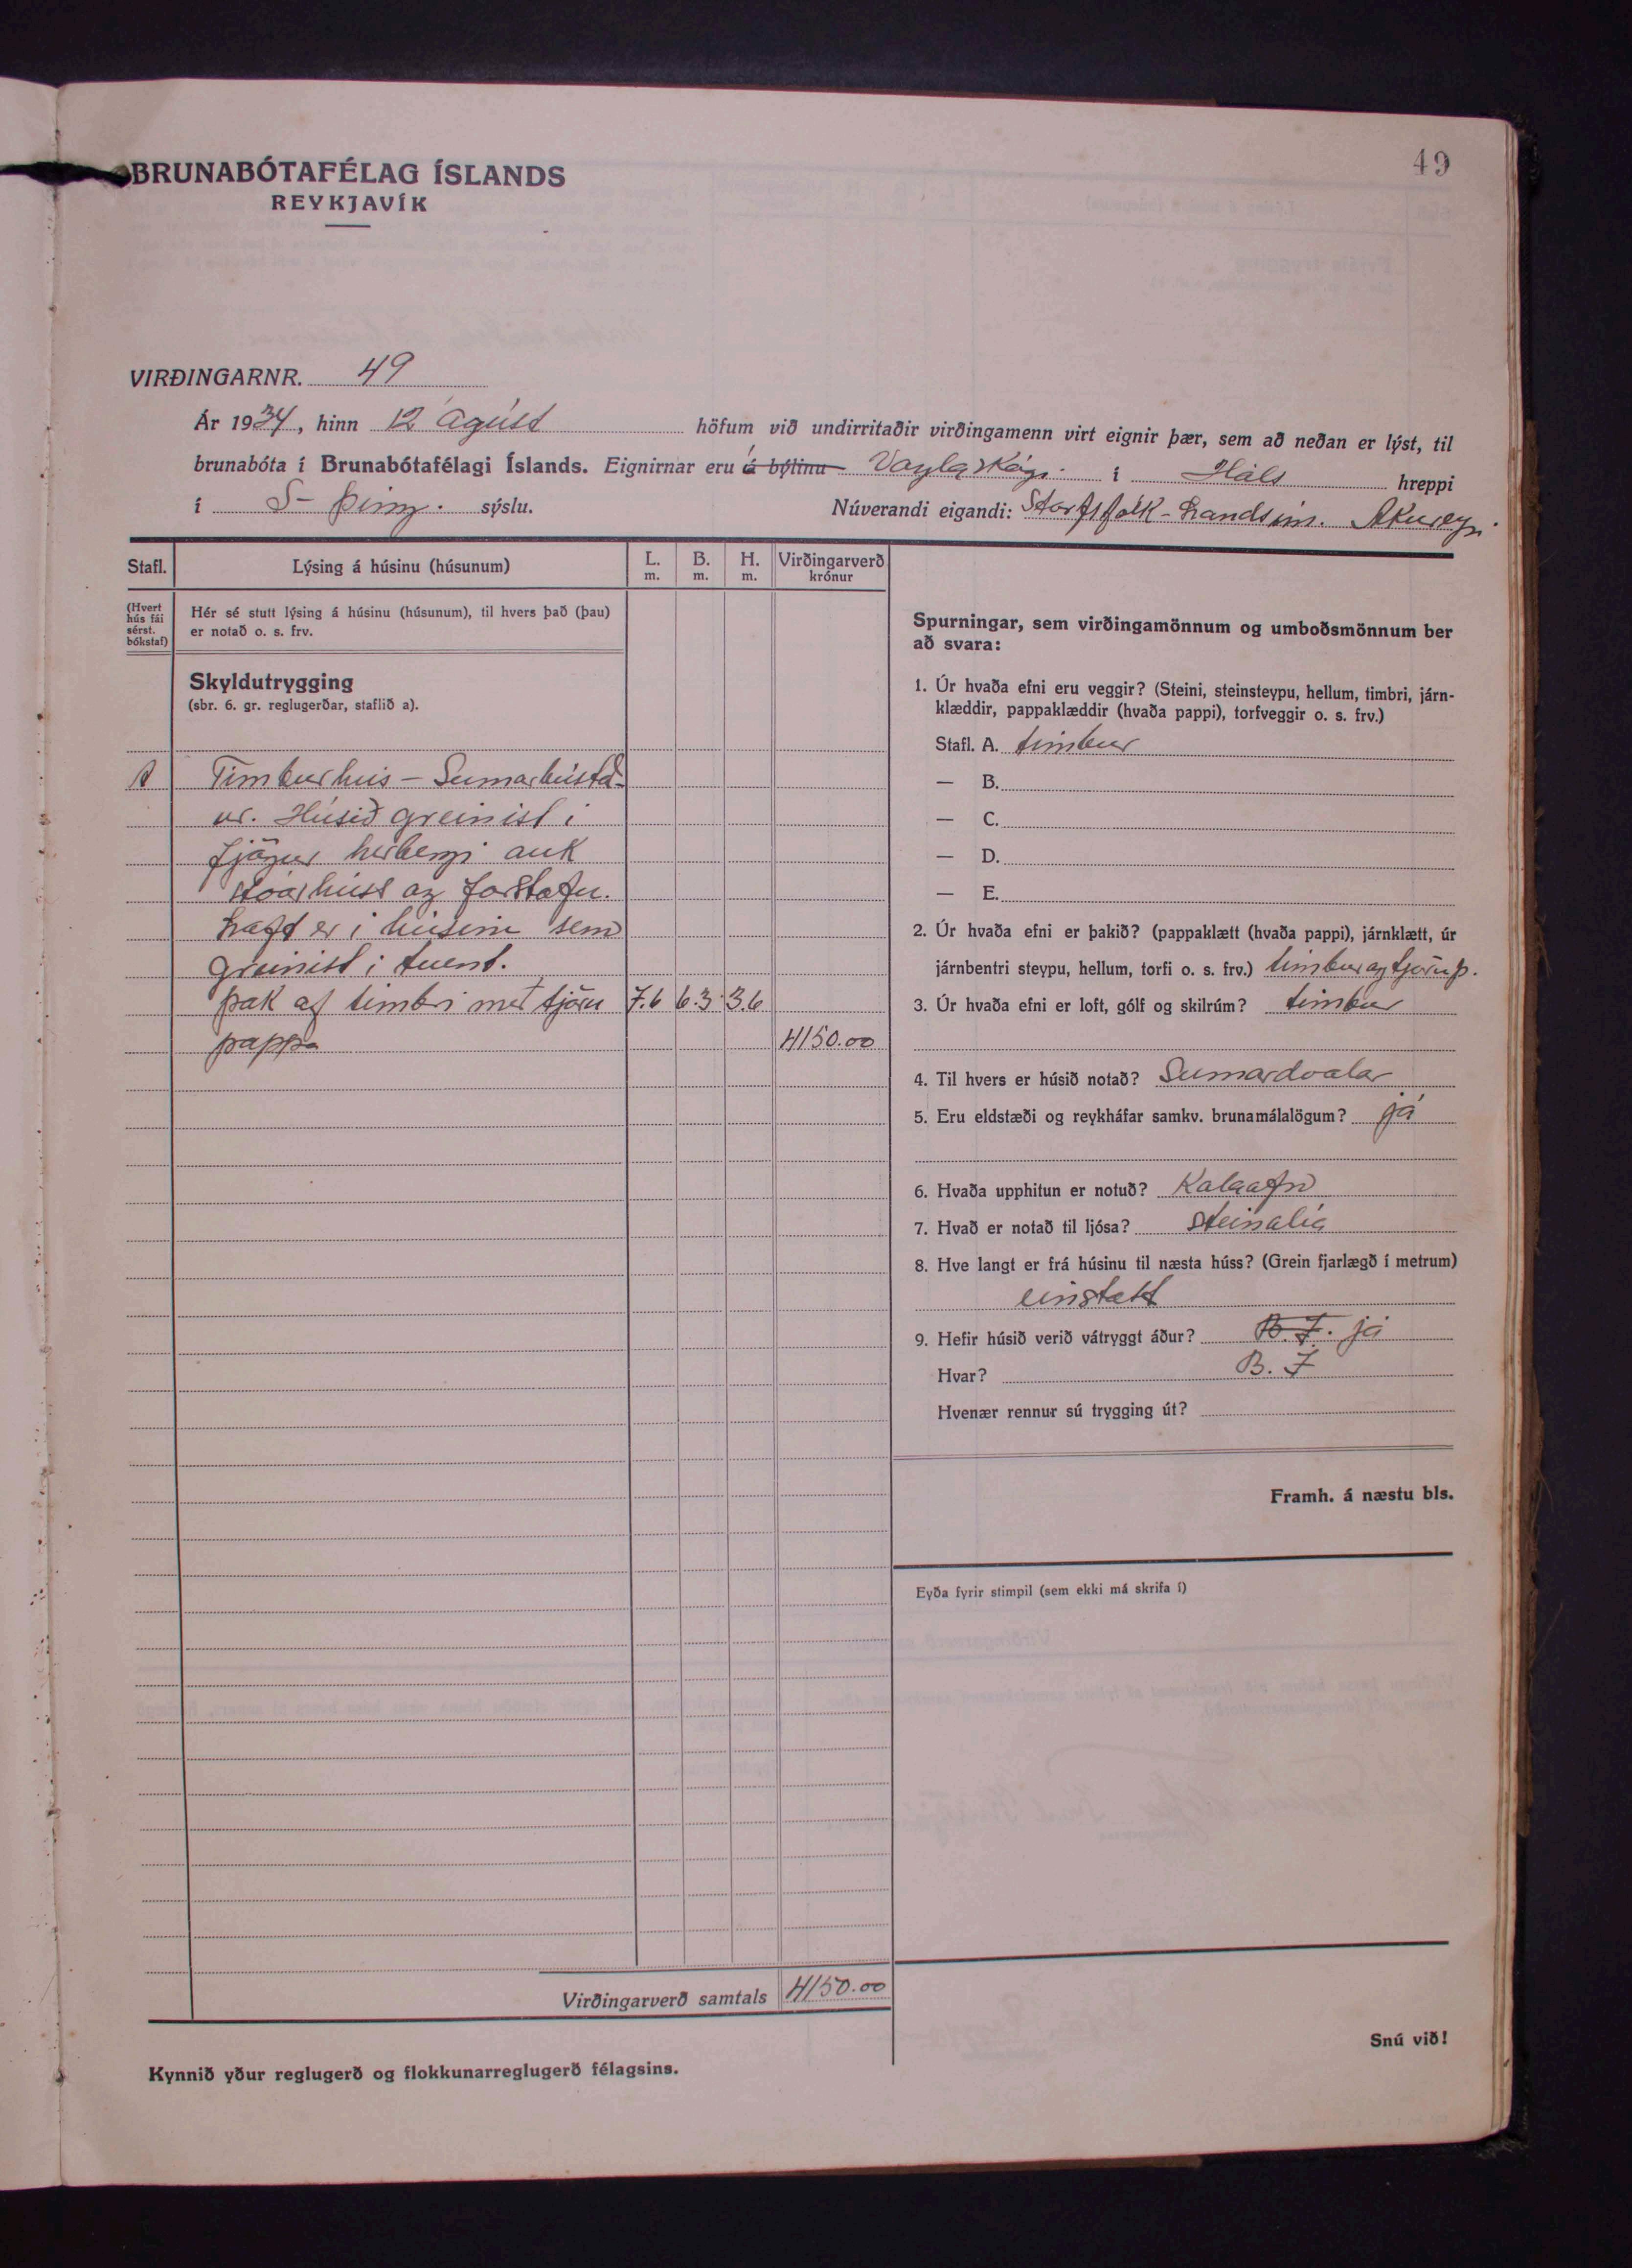 49
BRUNABÓTAFÉLAG ÍSLANDS
REYKJAVÍK
VIRÐINGARNR. 49
Ár 1934, hinn 12 ágúst höfum við undirritaðir virðingamenn virt eignir þær, sem að neðan er lýst, til
brunabóta í Brunabótafélagi Íslands. Eignirnar eru í á býlinu Vaglaskógi í Háls hreppi
í S-Þing. sýslu. Núverandi eigandi: Starfsfólk-Landsím. Akureyri
Stafl. Lýsing á húsinu (húsunum) L. m. B. m. H. m. Virðingarverð krónur
(Hvert hús fái sérst. bókstaf)
Hér sé stutt lýsing á húsinu (húsunum), til hvers það (þau)
er notað o. s. frv.
Skyldutrygging
(sbr. 6. gr. reglugerðar, staflið a).
A Timburhús - Sumarbústað-
ur. Húsið greinist í
fjögur herbergi auk
stóarhúss og forstofu.
Loft er í húsinu sem
greinist í tvent.
Þak af timbri með tjöru 7.6 6.3 3.6
pappa 4150.00
Virðingarverð samtals 4150.00
Kynnið yður reglugerð og flokkunarreglugerð félagsins.
Spurningar, sem virðingamönnum og umboðsmönnum ber
að svara:
1. Úr hvaða efni eru veggir? (Steini, steinsteypu, hellum, timbri, járn-
klæddir, pappaklæddir (hvaða pappi), torfveggir o. s. frv.)
Stafl. A. timbur
— B.
— C.
— D.
— E.
2. Úr hvaða efni er þakið? (pappaklætt (hvaða pappi), járnklætt, úr
járnbentri steypu, hellum, torfi o. s. frv.) timbur og tjörup.
3. Úr hvaða efni er loft, gólf og skilrúm? timbur
4. Til hvers er húsið notað? Sumardvalar
5. Eru eldstæði og reykháfar samkv. brunamálalögum? já
6. Hvaða upphitun er notuð? Kolaofn
7. Hvað er notað til ljósa? steinolía
8. Hve langt er frá húsinu til næsta húss? (Grein fjarlægð í metrum)
einstætt
9. Hefir húsið verið vátryggt áður? B. Í. já
Hvar? B. Í
Hvenær rennur sú trygging út?
Framh. á næstu bls.
Eyða fyrir stimpil (sem ekki má skrifa í)
Snú við!